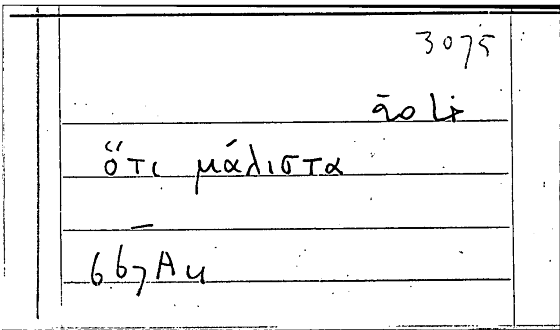 3075
ὅτι μάλιστα
667A4